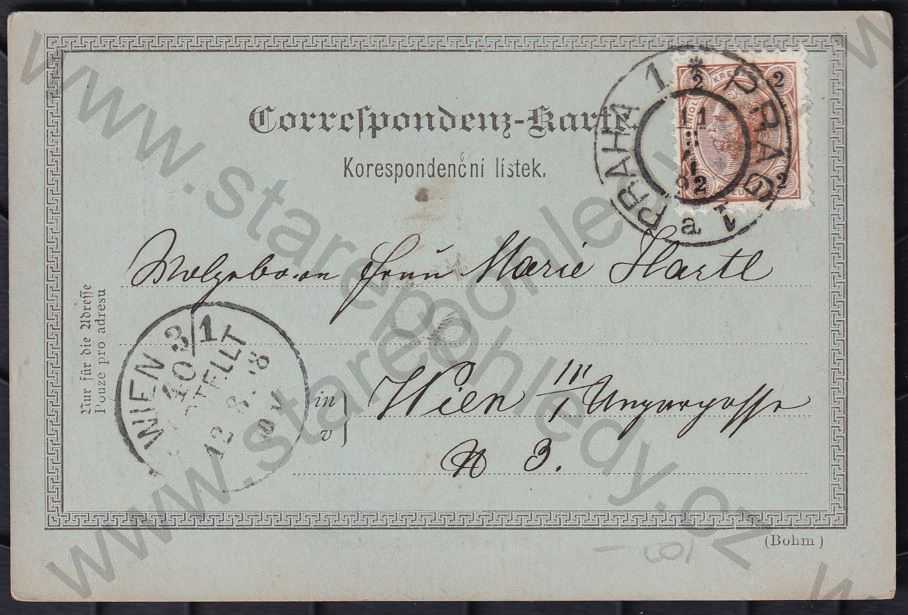 Correspondenz-Karte
Korespondenční lístek.
Wolgeboren Frau Marie Hartl
in
v
Wien III/1 Ungargasse
N 3.
Nur für die Adresse
Pouze pro adresu
PRAHA 1 * PRAG 1
11
a
2 2
2 2
WIEN 3/1
40
BESTELLT
12.8.
(Bohm)
www.starepohledy.cz
www.starepohledy.cz